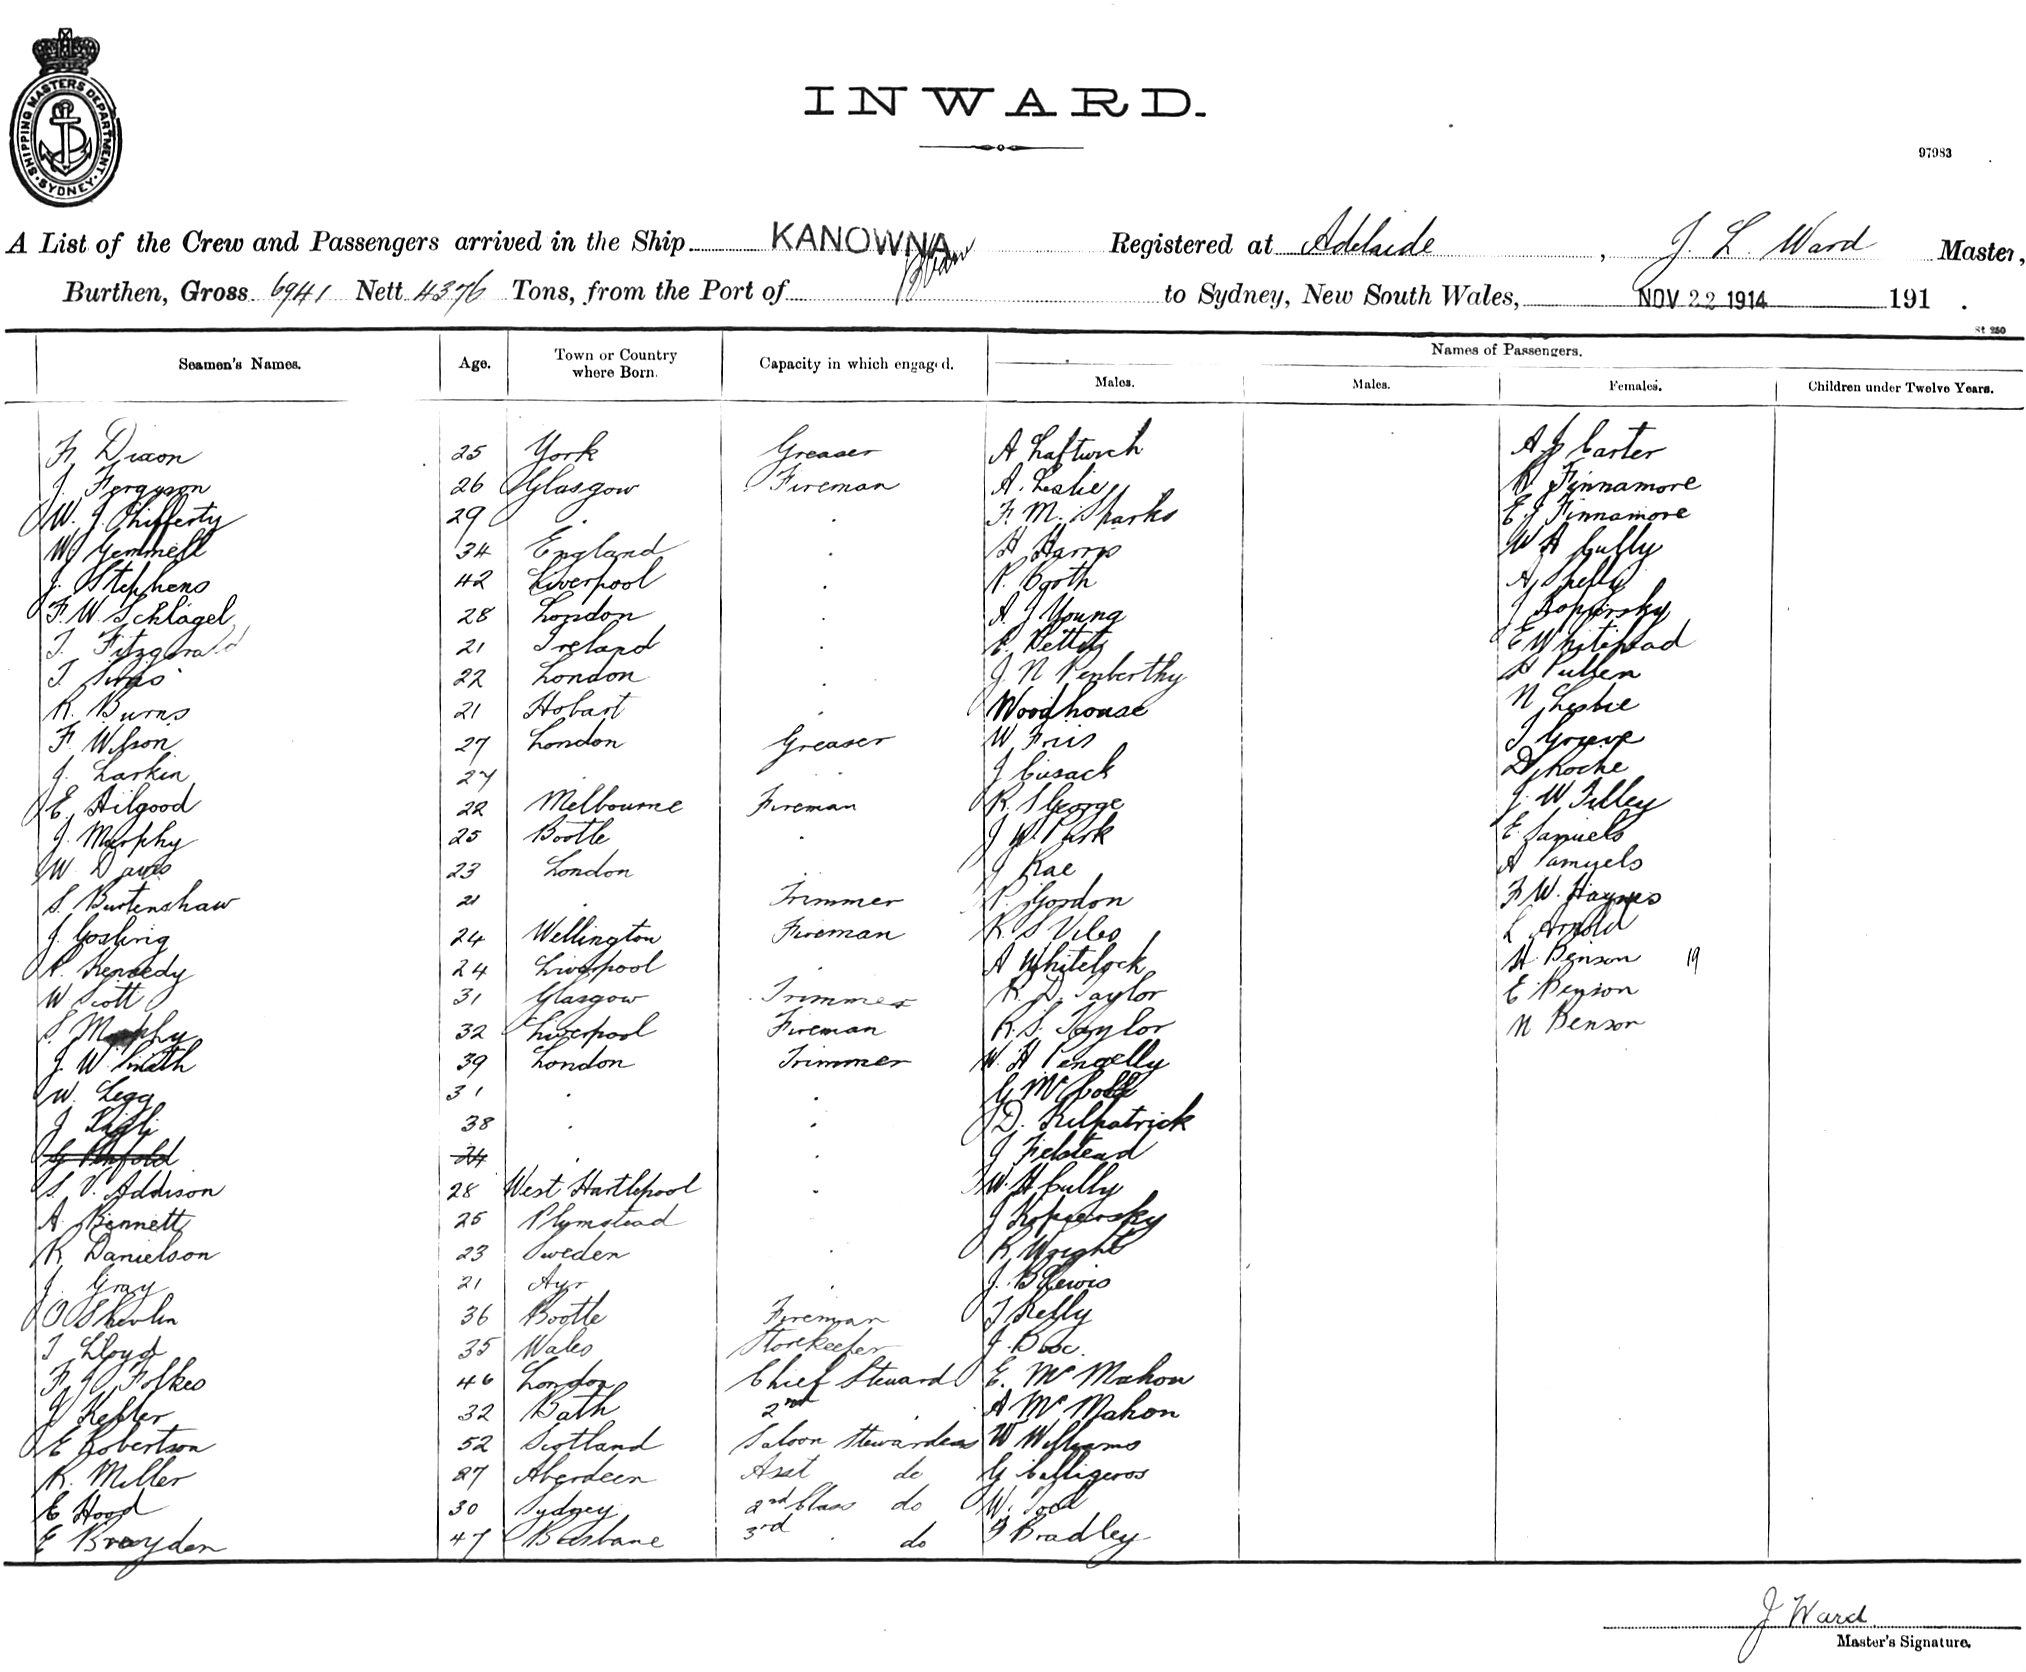 SHIPPING MASTERS DEPARTMENT · SYDNEY ·
INWARD.
97983
A List of the Crew and Passengers arrived in the Ship KANOWNA Registered at Adelaide, J. L. Ward Master,
Burthen, Gross 6941 Nett 4376 Tons, from the Port of to Sydney, New South Wales, NOV 22 1914 191 .
St 250
Seamen's Names. Age. Town or Country where Born. Capacity in which engaged. Names of Passengers.
Males. Males. Females. Children under Twelve Years.
F. Dixon 25 York Greaser A A J Carter
J. Ferguson 26 Glasgow Fireman A. Leslie R Finnamore
W. J. 29 . . F. M. Sparks E J Finnamore
W. Gemmell 34 England . H Harris W H Cully
J. Stephens 42 Liverpool . R. Booth A Skelly
F. W. Schlagel 28 London . A. J Young J Kopiersky
T. Fitzgerald 21 Ireland . Pettit E Whitehead
T. Sims 22 London . J. N Penberthy Pullen
R. Burns 21 Hobart . Woodhouse N Leslie
F. Wilson 27 London Greaser W Friis J Grieve
J. Larkin 27 . . J Cusack D Roche
E. Hilgood 22 Melbourne Fireman R. S George J. W Tilley
J. Murphy 25 Bootle . J W. Park E Samuels
W Davis 23 London J Rae A Samuels
S. Burtenshaw 21 . Trimmer P. Gordon F. W. Haynes
J. Gosling 24 Wellington Fireman R. S Viles L Arnold
P. Kennedy 24 Liverpool . A Whitelock H. Benson 19
W Scott 31 Glasgow Trimmer R. D. Taylor E Benson
S. Murphy 32 Liverpool Fireman R. S. Taylor N Benson
J. W. Smith 39 London Trimmer W. H Pengelly
W. Legg 31 . . G McColl
J 38 . . D. Kilpatrick
G Penfold 24 . . J Felstead
S. V. Addison 28 West Hartlepool . W. H Cully
A. Bennett 25 Plymstead J Kopiersky
R Danielson 23 Sweden . R. Wright
J. Gray 21 Ayr . J. B Lewis
O Shevlin 36 Bootle Fireman T Kelly
T Lloyd 35 Wales Storekeeper J.
F. J. Folkes 46 London Chief Steward E. McMahon
J Kepler 32 Bath 2nd . A McMahon
E Robertson 52 Scotland Saloon Stewardess W Williams
R. Miller 27 Aberdeen Asst do G Calligeros
E Hood 30 Sydney 2nd Class do W. Tood
E Brayden 47 Brisbane 3rd . do F Bradley
J Ward
Master's Signature.